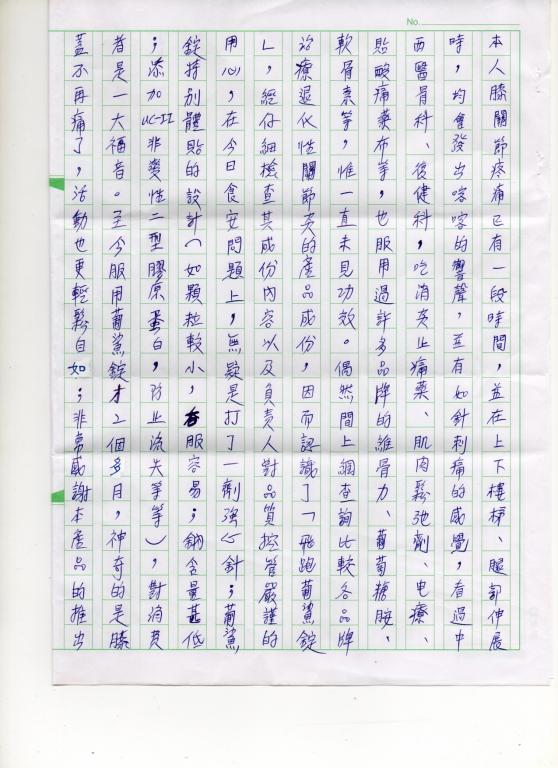 No.
本人膝關節疼痛已有一段時間，並在上下樓梯、腿部伸展
時，均會發出喀喀的響聲，並有如針刺痛的感覺，看過中
西醫骨科、復健科，吃消炎止痛藥、肌肉鬆弛劑、电療、
貼酸痛藥布等，也服用過許多品牌的維骨力、葡萄糖胺、
軟骨素等，惟一直未見功效。偶然間上網查詢比較各品牌
治療退化性關節炎的產品成份，因而認識了「飛跑葡鯊錠
」，經仔細檢查其成份內容以及負責人對品質控管嚴謹的
用心，在今日食安問題上，無疑是打了一劑強心針；葡鯊
錠特別體貼的設計（如顆粒較小，服容易；鈉含量甚低
；添加UC-II非變性二型膠原蛋白，防止流失等等），對消費
者是一大福音。至今服用葡鯊錠才2個多月，神奇的是膝
蓋不再痛了，活動也更輕鬆自如；非常感謝本產品的推出